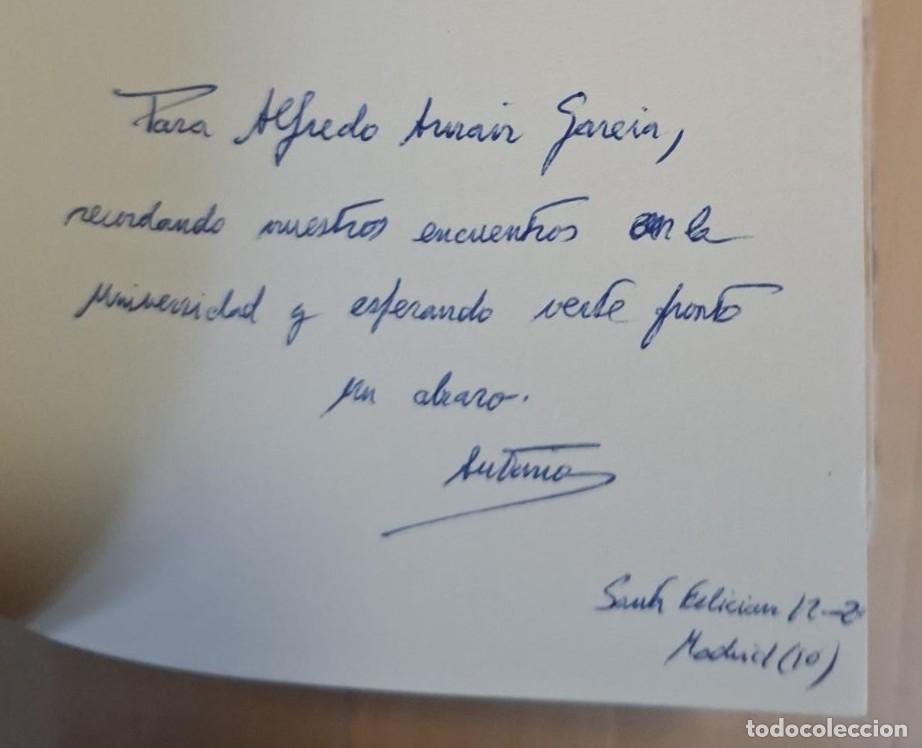 Para Alfredo García,
recordando nuestros encuentros en la
Universidad y esperando verte pronto
un abrazo.
Antonio
Santa Feliciana 12-2
Madrid (10)
todocoleccion